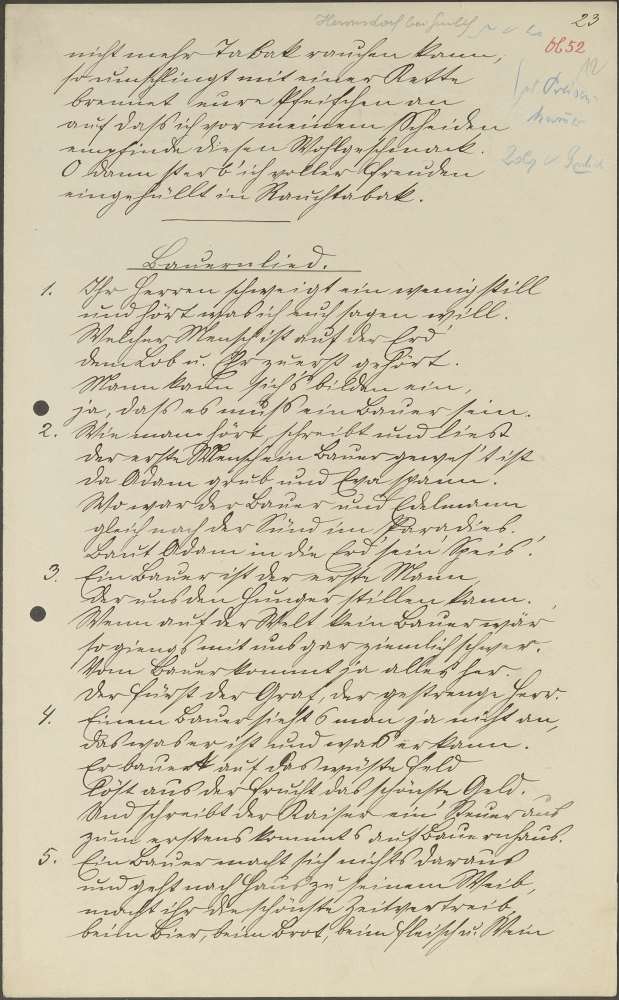 23
b652
nicht mehr Tabak rauchen kann,
so umschlingt mit einer Kette
brennet eure Pfeifchen an
auf dass ich vor meinem Scheiden
empfinde diesen Wohlgeschmack.
O dann sterb' ich voller Freuden
eingehüllt in Rauchtabak.
Bauernlied.
1. Ihr Herren schweigt ein wenig still
und hört was ich euch sagen will.
Welcher Mensch ist auf der Erd'
dem Lob u. Ehr zuerst gehört.
Mann kann sich's bilden ein,
ja, dass es muss ein Bauer sein.
2. Wie man hört, schreibt und liest
der erste Mensch ein Bauer gewes't ist
da Adam grub und Eva spann.
Wo war der Bauer und Edelmann
gleich nach der Sünd im Paradies.
Baut Adam in die Erd' sein Speis'.
3. Ein Bauer ist der erste Mann,
der uns den Hunger stillen kann.
Wenn auf der Welt kein Bauer wär
so giengs mit uns gar ziemlich schwer.
Vom Bauer kommt ja alles her.
Der Fürst der Graf, der gestrenge Herr.
4. Einem Bauer sieht's man ja nicht an,
das was er ist und was er kann.
Er bauert auf das wüste Feld
Löst aus der Frucht das schönste Geld.
Und schreibt der Kaiser ein' Steuer aus
zum erstens kommt's auf Bauernhaus.
5. Ein Bauer macht sich nichts daraus
und geht nach Haus zu seinem Weib,
macht ihr die schönste Zeitvertreib,
beim Bier, beim Brot, beim Fleisch u. Wein